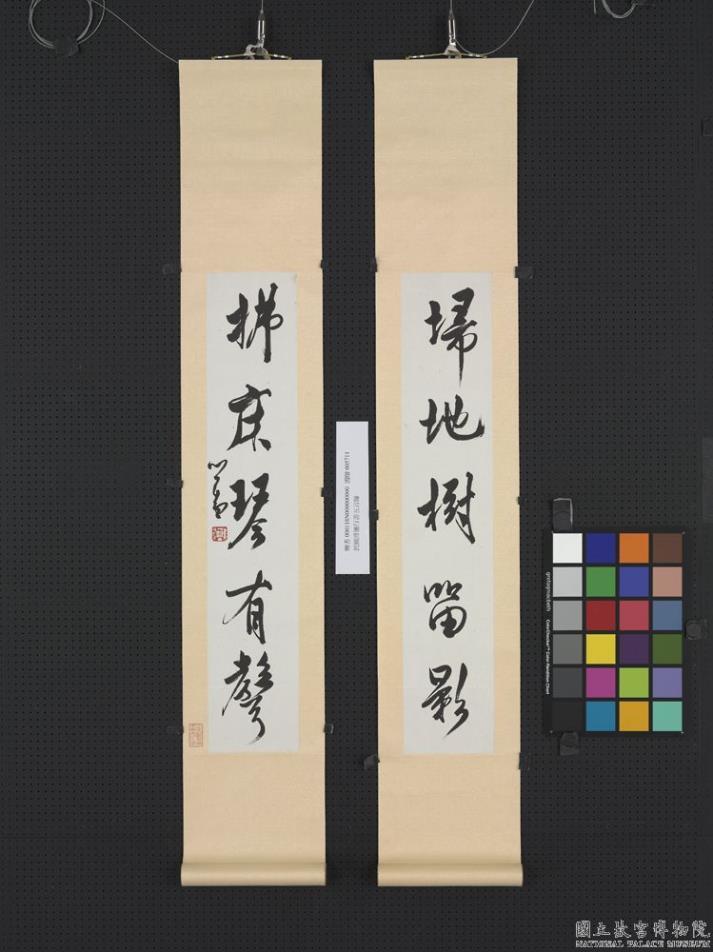 埽地樹留影
拂床琴有聲
心畬
國立故宮博物院
NATIONAL PALACE MUSEUM